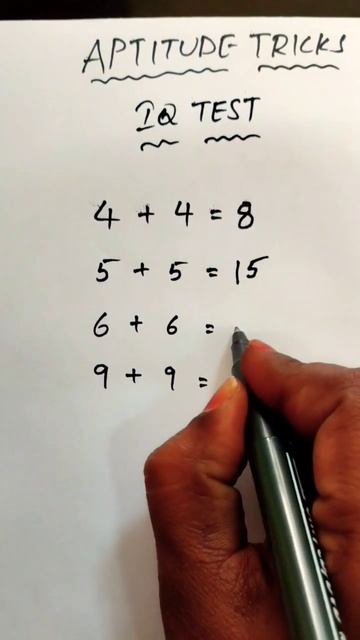 APTITUDE TRICKS
IQ TEST
4 + 4 = 8
5 + 5 = 15
6 + 6 =
9 + 9 =